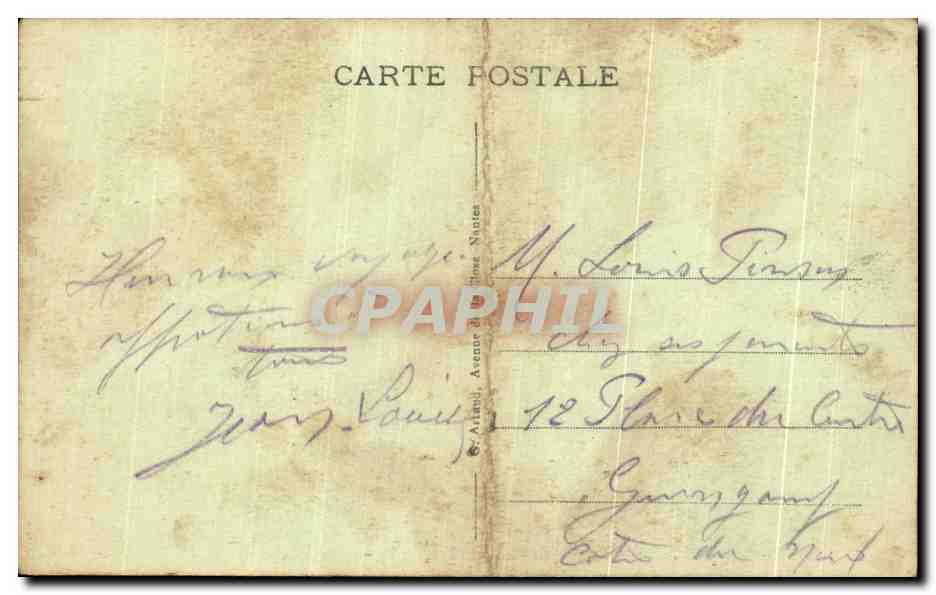 CARTE POSTALE
G. Artaud, Avenue de la Close Nantes
CPAPHIL
Heureux voyage
tous
Jean, Louis
M. Louis
chez ses parents
12 Place du Centre
Guingamp
Cotes du Nord